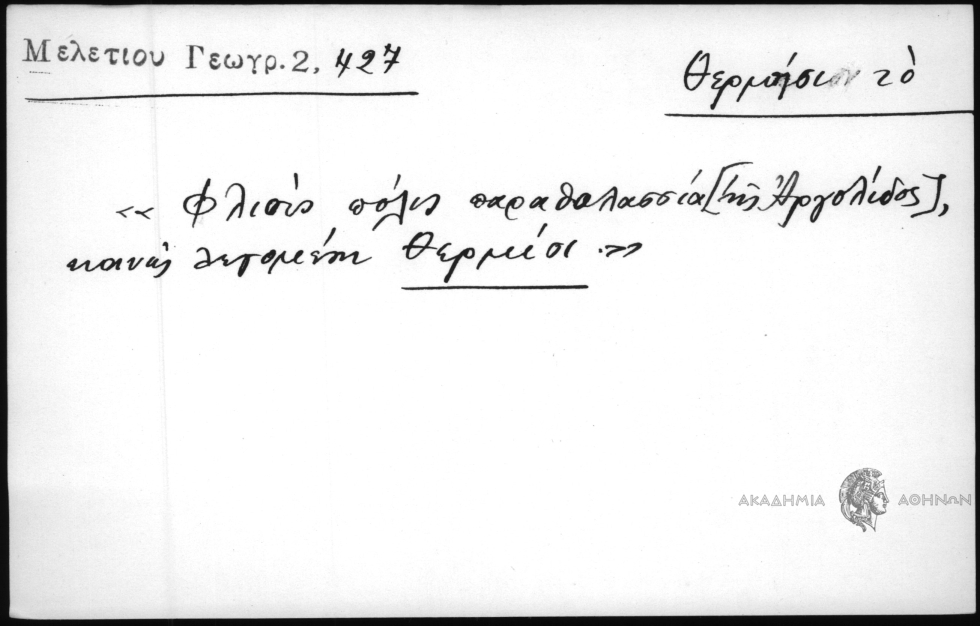 Μελετιου Γεωγρ. 2, 427
Θερμήσιον τὸ
« Φλιοῦς πόλις παραθαλασσία [τῆς Ἀργολίδος],
κοινῶς λεγομένη Θερμίσι »
ΑΚΑΔΗΜΙΑ ΑΘΗΝΩΝ